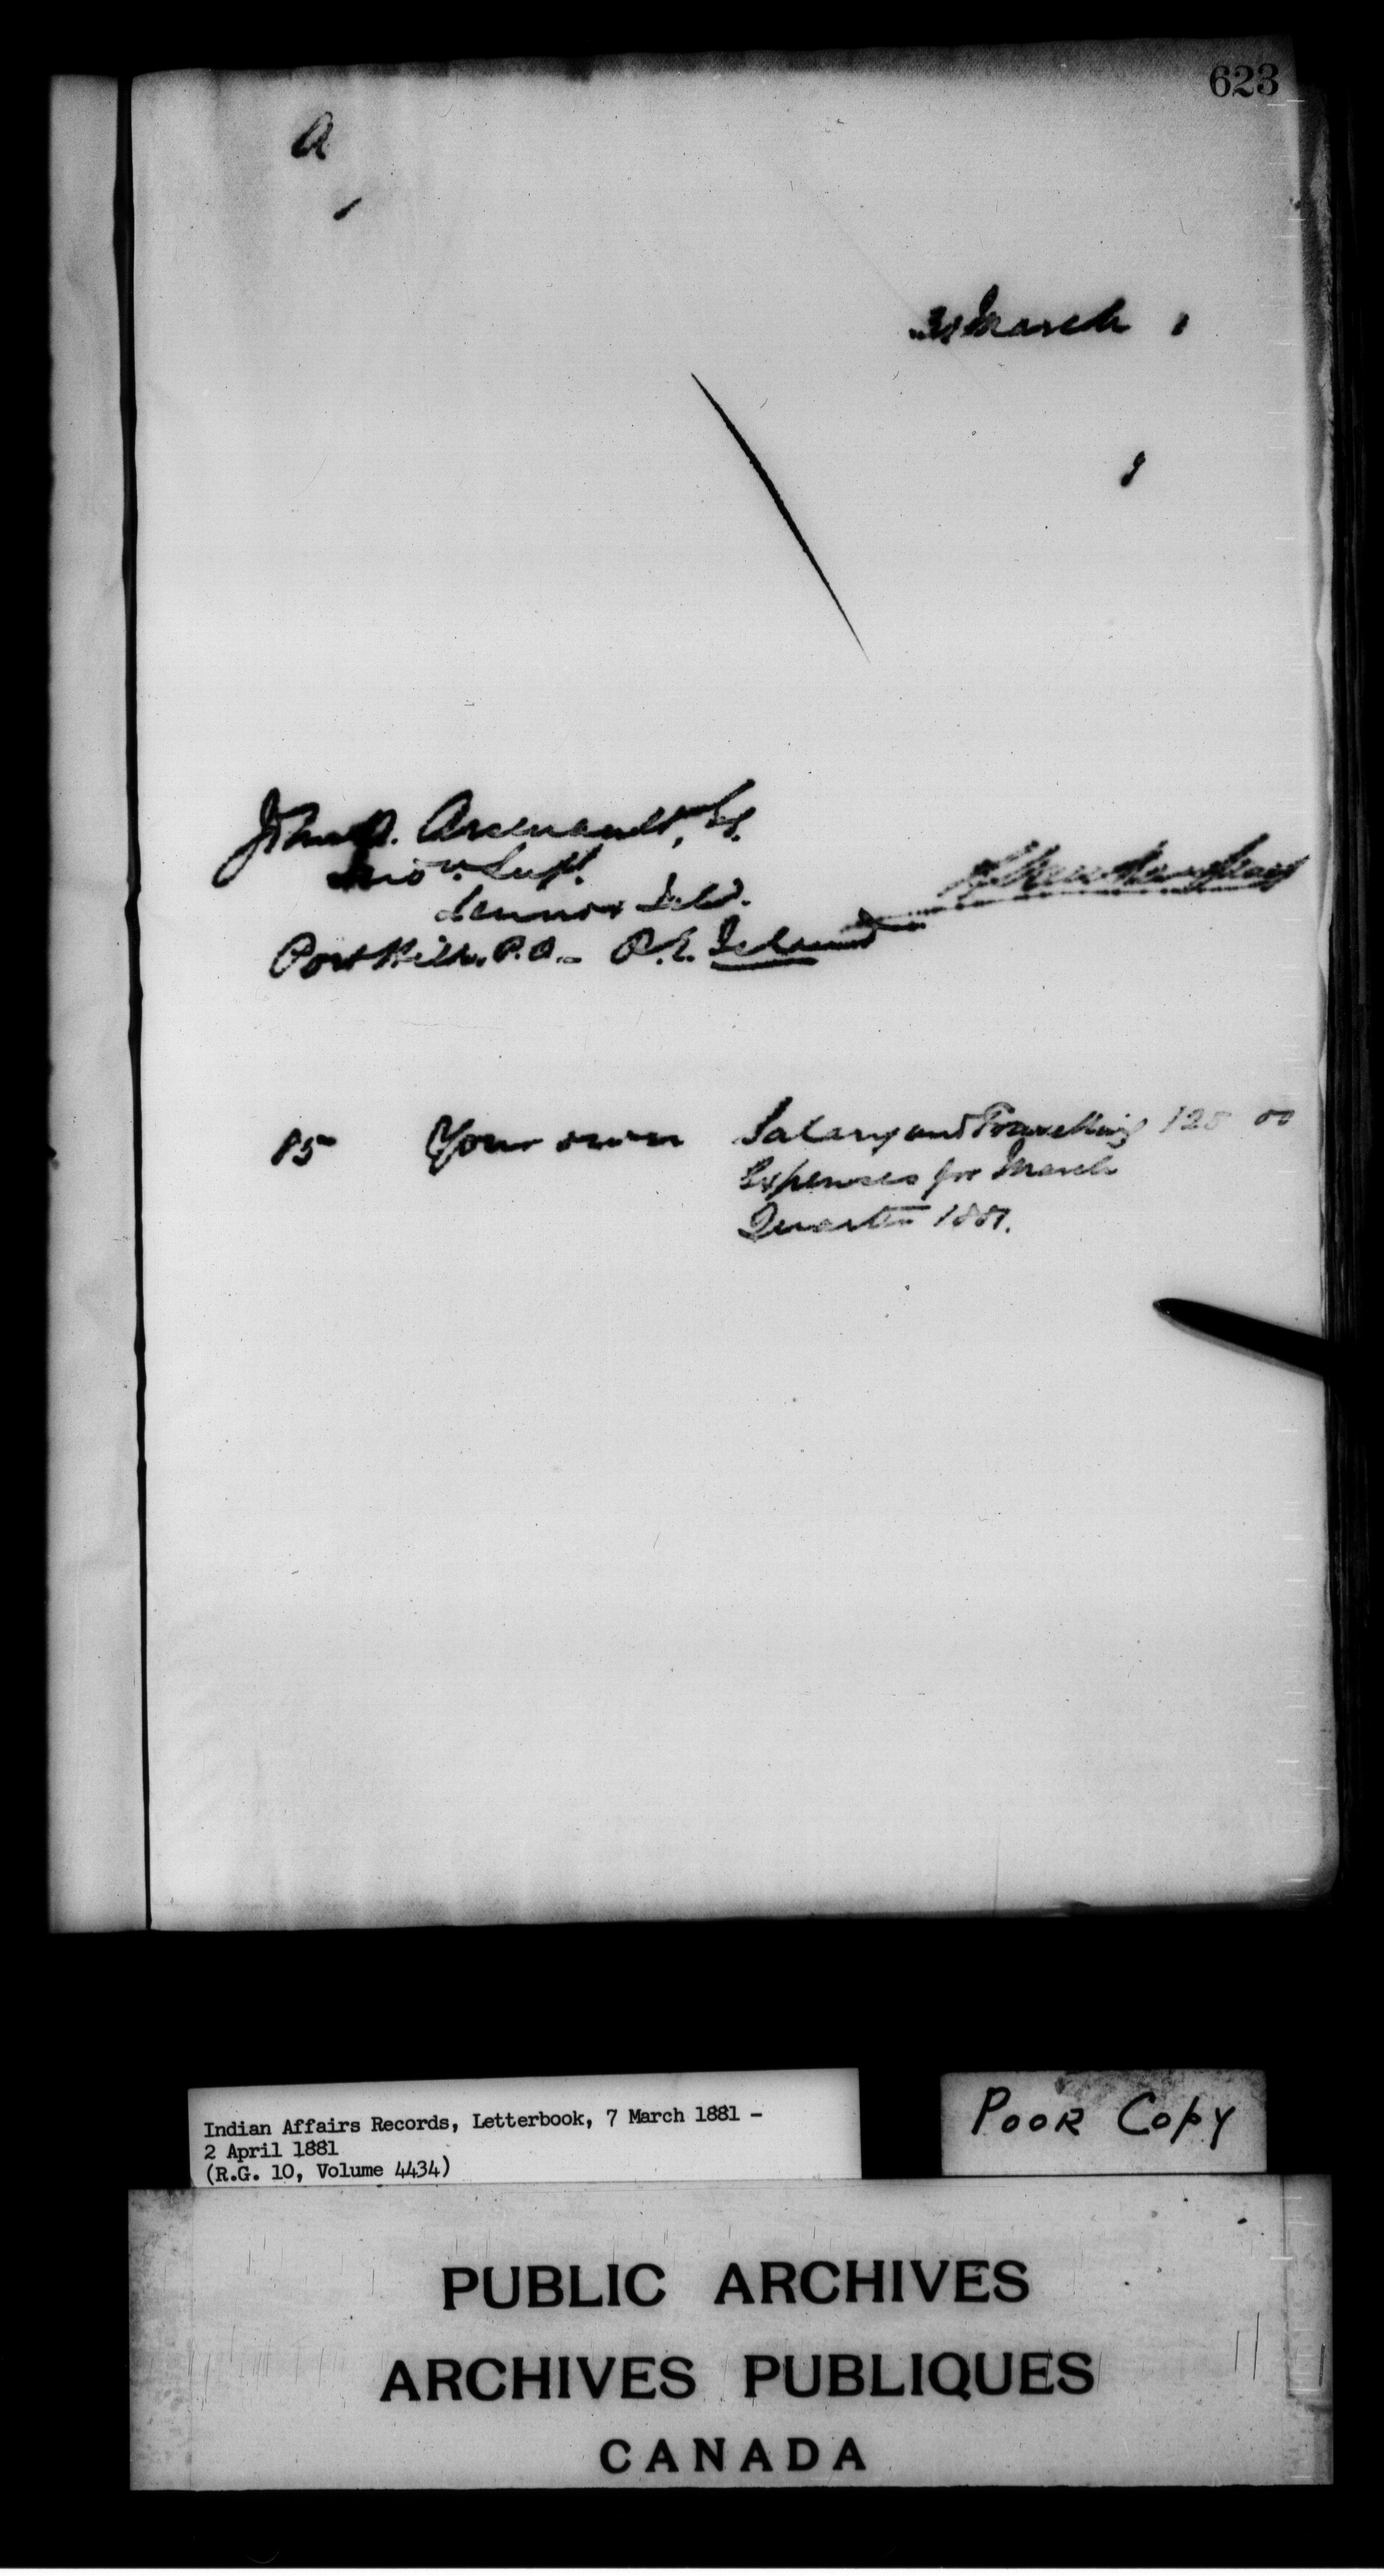 623
A
31 March 1
1
John O. Arsenault, Esq.
Ind. Supt.
Lennox Isld.
Port Hill. P.O. - P.E. Island
85 Your own Salary and Travelling 125 00
Expenses for March
Quarter 1881.
Indian Affairs Records, Letterbook, 7 March 1881 -
2 April 1881
(R.G. 10, Volume 4434)
POOR COPY
PUBLIC ARCHIVES
ARCHIVES PUBLIQUES
CANADA